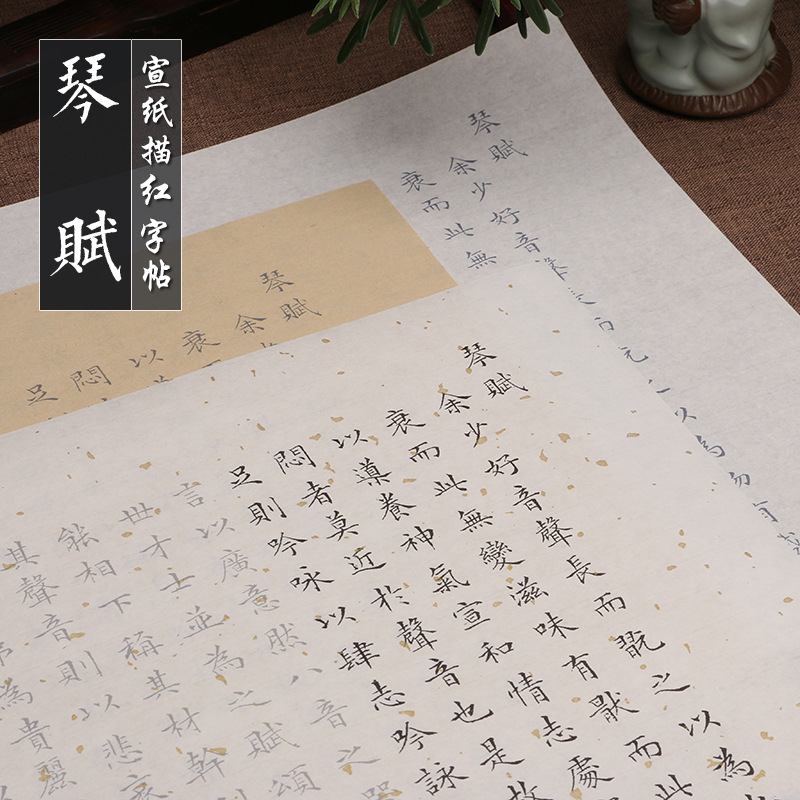 琴賦
宣纸描红字帖
琴賦
余少好音
衰而此無
琴賦
余
衰
以
悶
足
琴賦
余少好音聲長而翫之以為
衰而此無變滋味有猒而此
以導養神氣宣和情志處
悶者莫近於聲音也是故
足則吟咏以肆志吟詠
言以廣意然八音之
世才士並為之賦頌
能相下稱其材幹
其聲音則以悲哀
為貴麗